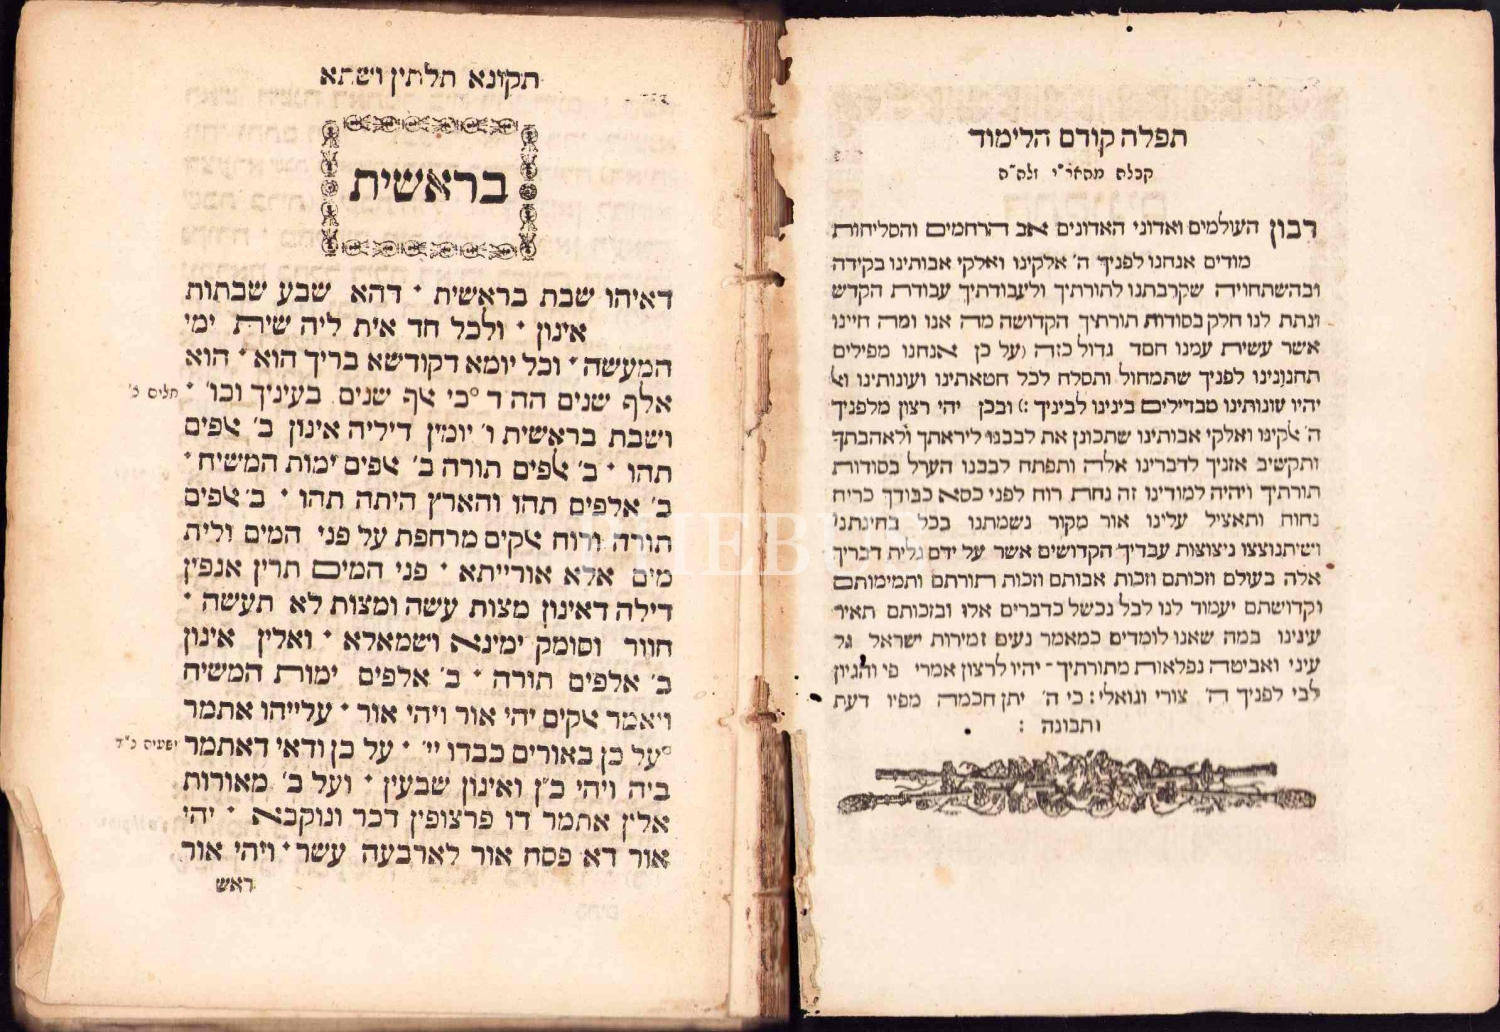 תפלה קודם הלימוד
קבלה מהאר״י זלה״ה
רבון העולמים ואדוני האדונים אב הרחמים והסליחות
מודים אנחנו לפניך ה׳ אלקינו ואלקי אבותינו בקידה
ובהשתחויה שקרבתנו לתורתיך ולעבודתיך עבודת הקדש
ונתת לנו חלק בסודות תורתיך הקדושה מה אנו ומה חיינו
אשר עשית עמנו חסד גדול כזה (על כן אנחנו מפילים
תחנונינו לפניך שתמחול ותסלח לכל חטאתינו ועונותינו ואל
יהיו עונותינו מבדילים בינינו לביניך :) ובכן יהי רצון מלפניך
ה׳ אלקינו ואלקי אבותינו שתכונן את לבבנו ליראתך ולאהבתך
ותקשיב אזניך לדברינו אלה ותפתח לבבנו הערל בסודות
תורתיך ויהיה למודינו זה נחת רוח לפני כסא כבודך כריח
נחוח ותאציל עלינו אור מקור נשמתנו בכל בחינתנו
ושיתנוצצו ניצוצות עבדיך הקדושים אשר על ידם גלית דבריך
אלה בעולם וזכותם וזכות אבותם וזכות תורתם ותמימותם
וקדושתם יעמוד לנו לבל נכשל בדברים אלו ובזכותם תאיר
עינינו במה שאנו לומדים כמאמר נעים זמירות ישראל גל
עיני ואביטה נפלאות מתורתיך ־ יהיו לרצון אמרי פי והגיון
לבי לפניך ה׳ צורי וגואלי : כי ה׳ יתן חכמה מפיו דעת
ותבונה :
תקונא תלתין ושתא
בראשית
דאיהו שבת בראשית ٠ דהא שבע שבתות
אינון ٠ ולכל חד אית ליה שירת ימי
המעשה ٠ וכל יומא דקודשא בריך הוא ٠ הוא
אלף שנים הה ד °כי אלף שנים בעיניך וכו׳ ٠ תלים כ׳
ושבת בראשית ו׳ יומין דיליה אינון ב׳ אלפים
תהו ٠ ב׳ אלפים תורה ב׳ אלפים ימות המשיח ٠
ב׳ אלפים תהו והארץ היתה תהו ٠ ב׳ אלפים
תורה ורוח אלקים מרחפת על פני המים ולית
מים אלא אורייתא ٠ פני המים תרין אנפין
דילה דאינון מצות עשה ומצות לא תעשה ٠
חוור וסומק ימינא ושמאלא ٠ ואלין אינון
ב׳ אלפים תורה ٠ ב׳ אלפים ימות המשיח
ויאמר אלקים יהי אור ויהי אור ٠ עלייהו אתמר
°על כן באורים כבדו יי׳ ٠ על כן ודאי דאתמר ישעים כ״ד
ביה ויהי כ״ן ואינון שבעין ٠ ועל ב׳ מאורות
אלין אתמר דו פרצופין דכר ונוקבא ٠ יהי
אור דא פסח אור לארבעה עשר ٠ ויהי אור
ראש